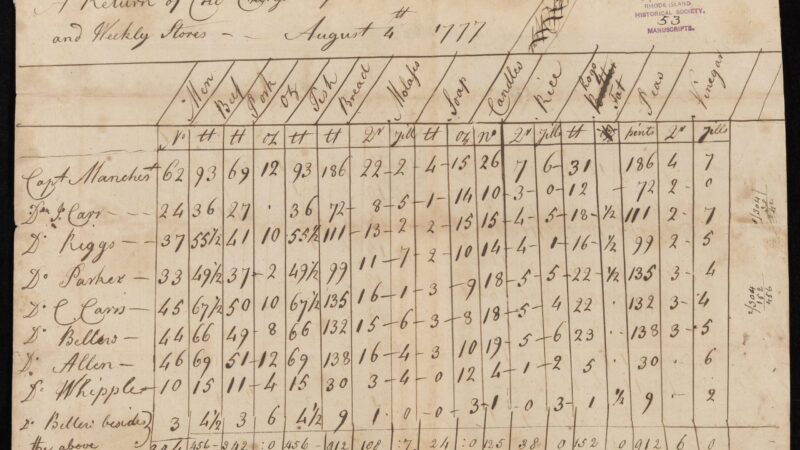 A Return of
and Weekly Stores -- August 4th 1777
RHODE ISLAND
HISTORICAL SOCIETY.
53
MANUSCRIPTS.
Men Beef Pork Oz Fish Bread Molases Soap Candles Rice Hogs Fat Peas Vinegar
No tt tt oz tt tt Qr gills tt oz no Qr gills tt pints Qr gills
Capt Manchest 62 93 69 12 93 186 22 - 2 - 4 - 15 26 7 6 - 31 186 4 7
Do Carr - - - 24 36 27 . 36 72 - 8 - 5 - 1 - 14 10 3 - 0 - 12 - 72 - 2 - 0
Do Riggs - 37 55 1/2 41 10 55 1/2 111 - 13 - 2 - 2 - 15 15 - 4 - 5 - 18 - 1/2 111 - 2 - 7
Do Parker - 33 49 1/2 37 - 2 49 1/2 99 11 - 7 - 2 - 10 14 - 4 - 1 - 16 - 1/2 99 - 2 - 5
Do C Carrs - 45 67 1/2 50 10 67 1/2 135 16 - 1 - 3 - 9 - 18 - 5 - 5 - 22 - 1/2 135 3 - 4
Do Bellers - 44 66 49 - 8 66 132 15 - 6 - 3 - 8 - 18 - 5 - 4 22 . 132 3 - 4
Do Allen - 46 69 51 - 12 69 138 16 - 4 - 3 10 19 - 5 - 6 23 . 138 3 - 5
Do Whipple 10 15 11 - 4 15 30 3 - 4 - 0 12 4 - 1 - 2 5 . 30 . 6
Do Bellers besides 3 4 1/2 3 6 4 1/2 9 1 . 0 - 0 - 3 - 1 0 3 - 1 9 - 2
the above 304 456 - 342 :0 456 - 912 108 :7 24 :0 125 38 0 152 0 912 6 0